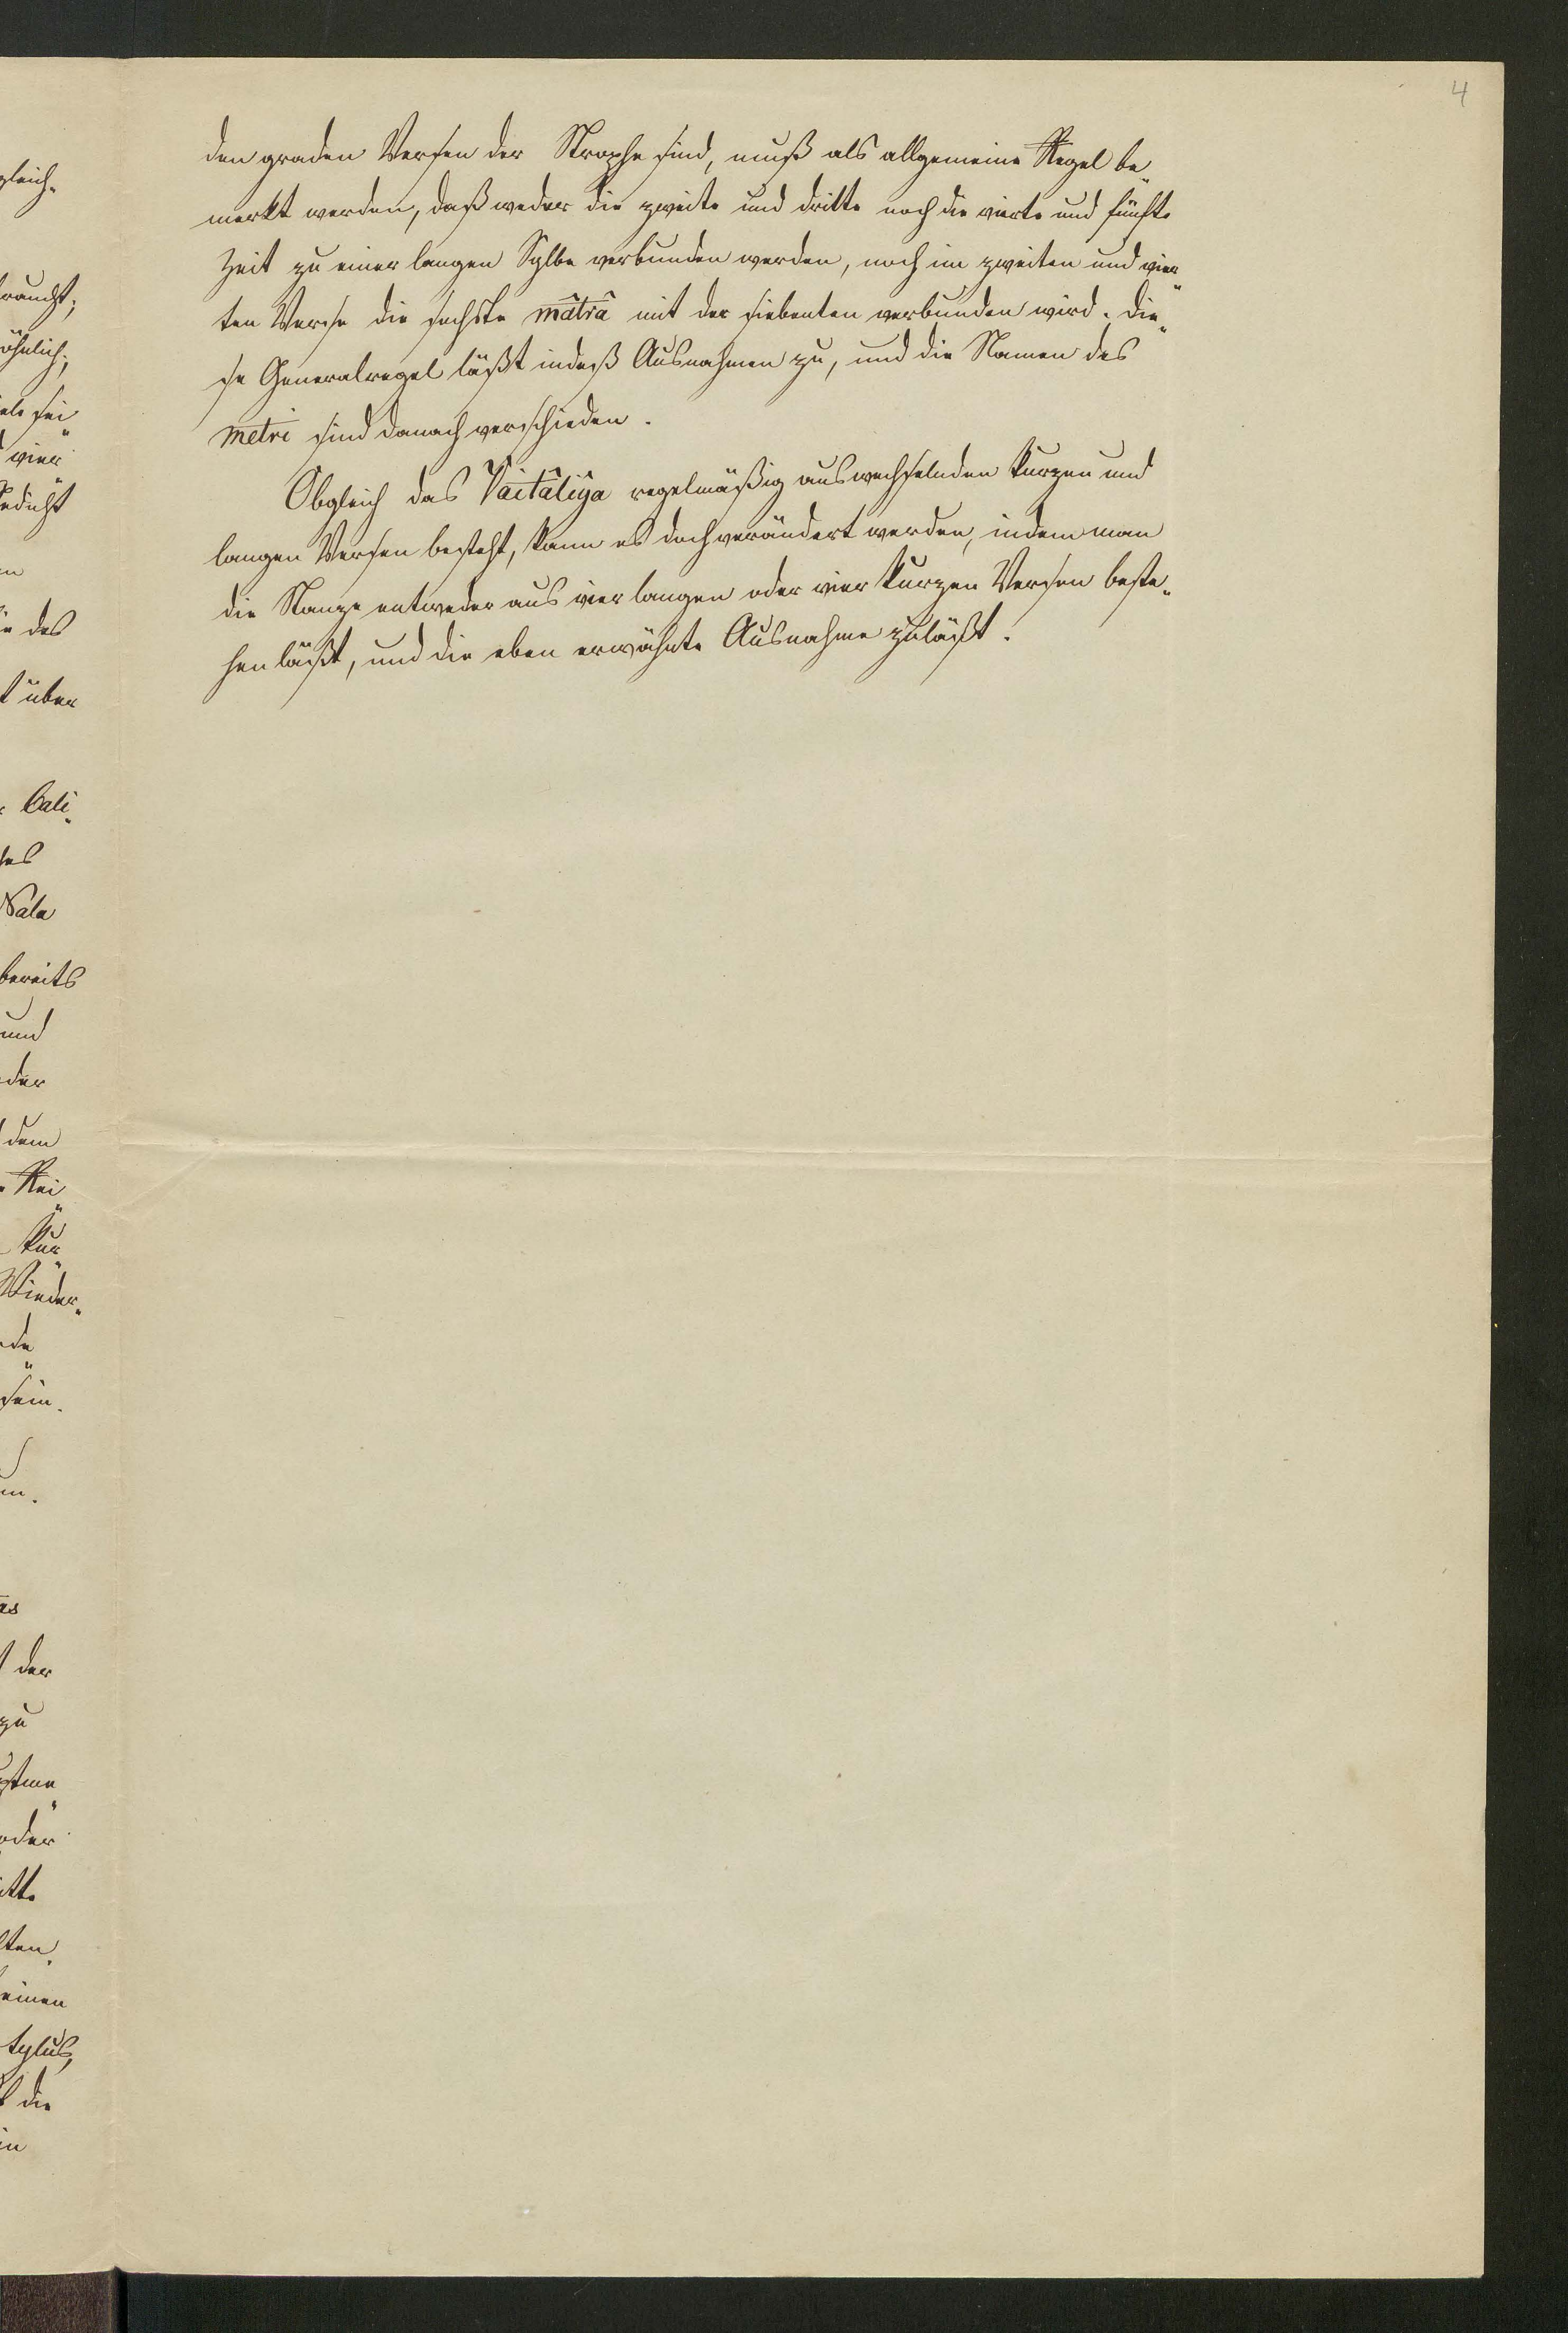 4
den graden Versen der Strophe sind, muß als allgemeine Regel be„
merkt werden, daß weder die zweite und dritte noch die vierte und fünfte
Zeit zu einer langen Sylbe verbunden werden, noch im zweiten und vier„
ten Verse die sechste mâtrâ mit der siebenten verbunden wird. Die„
se Generalregel läßt indeß Ausnahmen zu, und die Namen des
metri sind danach verschieden.
Obgleich das Vaitâlîya regelmäßig aus wechselnden kurzen und
langen Versen besteht, kann es doch verändert werden, indem man
die Stanze entweder aus vier langen oder vier kurzen Versen beste„
hen läßt, und die eben erwähnte Ausnahme zuläßt.
gleich„
vier
des
über
Cali„
Nala
bereits
und
der
dem
Rei„
kur„
Wieder„
sein.
der
zu
oder
einen
die